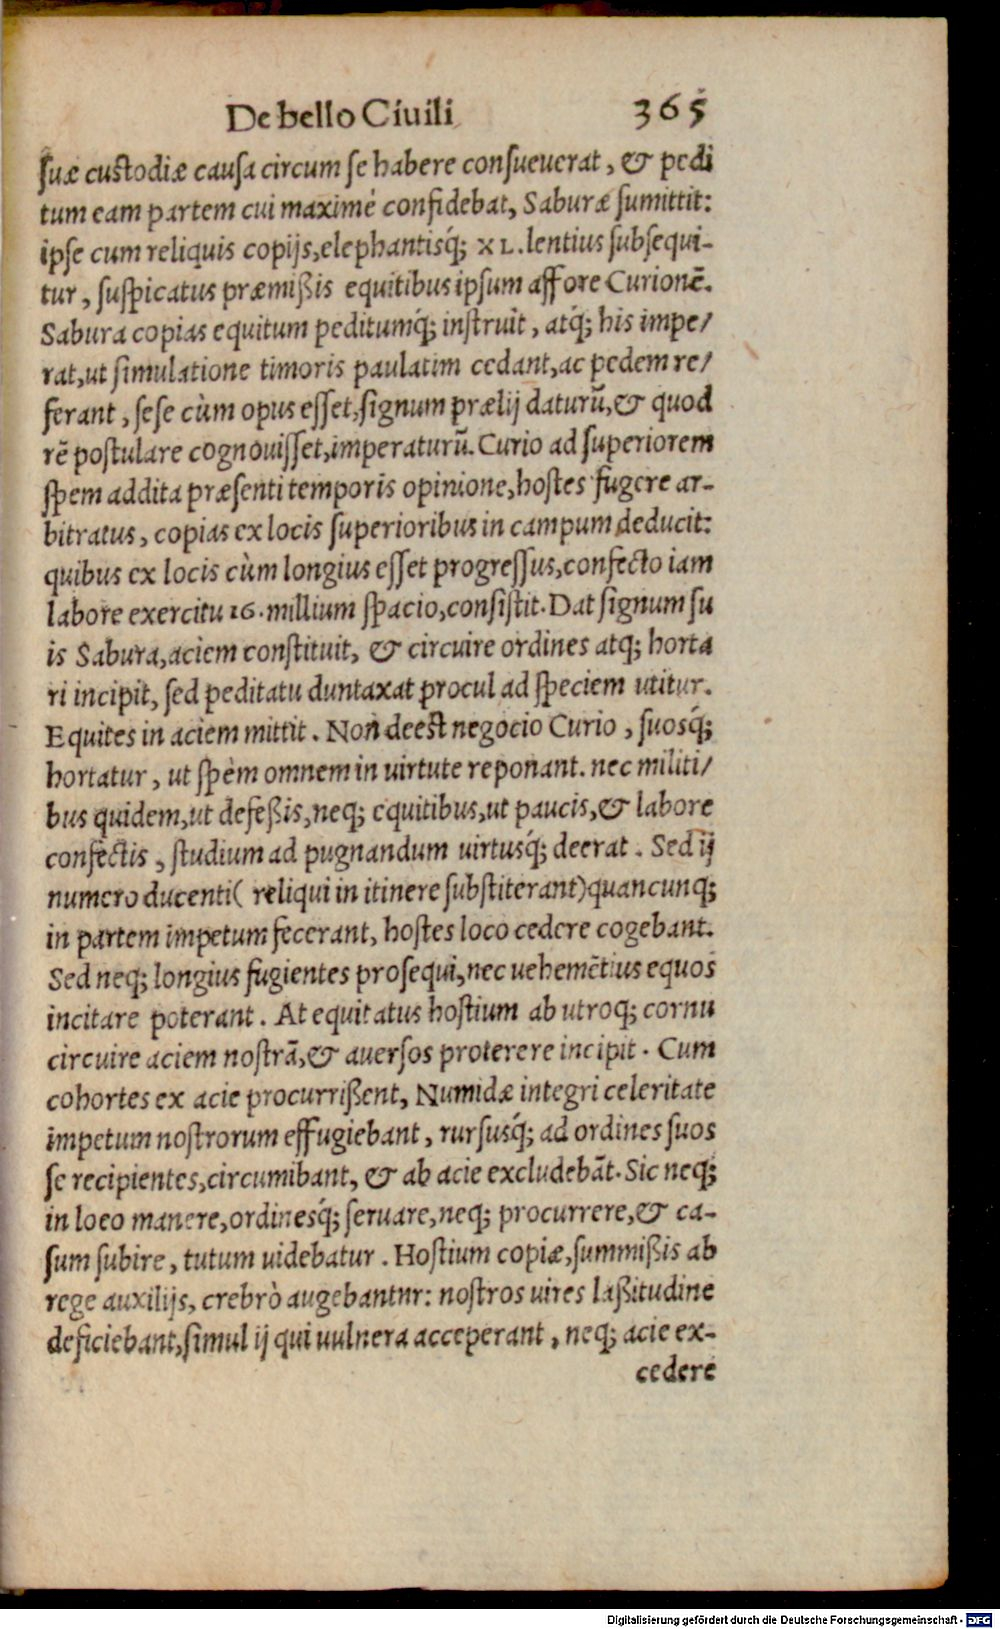 De bello Ciuili 365
suæ custodiæ causa circum se habere consueuerat, & pedi
tum eam partem cui maximè confidebat, Saburæ sumittit:
ipse cum reliquis copijs, elephantisq́; XL. lentius subsequi-
tur, suspicatus præmißis equitibus ipsum affore Curionē.
Sabura copias equitum peditumq́; instruit, atq́; his impe/
rat, ut simulatione timoris paulatim cedant, ac pedem re/
ferant, sese cùm opus esset, signum prælij daturū, & quod
rē postulare cognouisset, imperaturū. Curio ad superiorem
spem addita præsenti temporis opinione, hostes fugere ar-
bitratus, copias ex locis superioribus in campum deducit:
quibus ex locis cùm longius esset progressus, confecto iam
labore exercitu 16. millium spacio, consistit. Dat signum su
is Sabura, aciem constituit, & circuire ordines atq; horta
ri incipit, sed peditatu duntaxat procul ad speciem utitur.
Equites in aciem mittit. Non deest negocio Curio, suosq́;
hortatur, ut spem omnem in uirtute reponant. nec militi/
bus quidem, ut defeßis, neq; equitibus, ut paucis, & labore
confectis, studium ad pugnandum uirtusq́; deerat. Sed ij
numero ducenti( reliqui in itinere substiterant) quancunq;
in partem impetum fecerant, hostes loco cedere cogebant.
Sed neq; longius fugientes prosequi, nec uehemētius equos
incitare poterant. At equitatus hostium ab utroq; cornu
circuire aciem nostrā, & auersos proterere incipit. Cum
cohortes ex acie procurrißent, Numidæ integri celeritate
impetum nostrorum effugiebant, rursusq́; ad ordines suos
se recipientes, circumibant, & ab acie excludebāt. Sic neq;
in loco manere, ordinesq́; seruare, neq; procurrere, & ca-
sum subire, tutum uidebatur. Hostium copiæ, summißis ab
rege auxilijs, crebrò augebantnr: nostros uires laßitudine
deficiebant, simul ij qui uulnera acceperant, neq; acie ex-
cedere
Digitalisierung gefördert durch die Deutsche Forschungsgemeinschaft - DFG